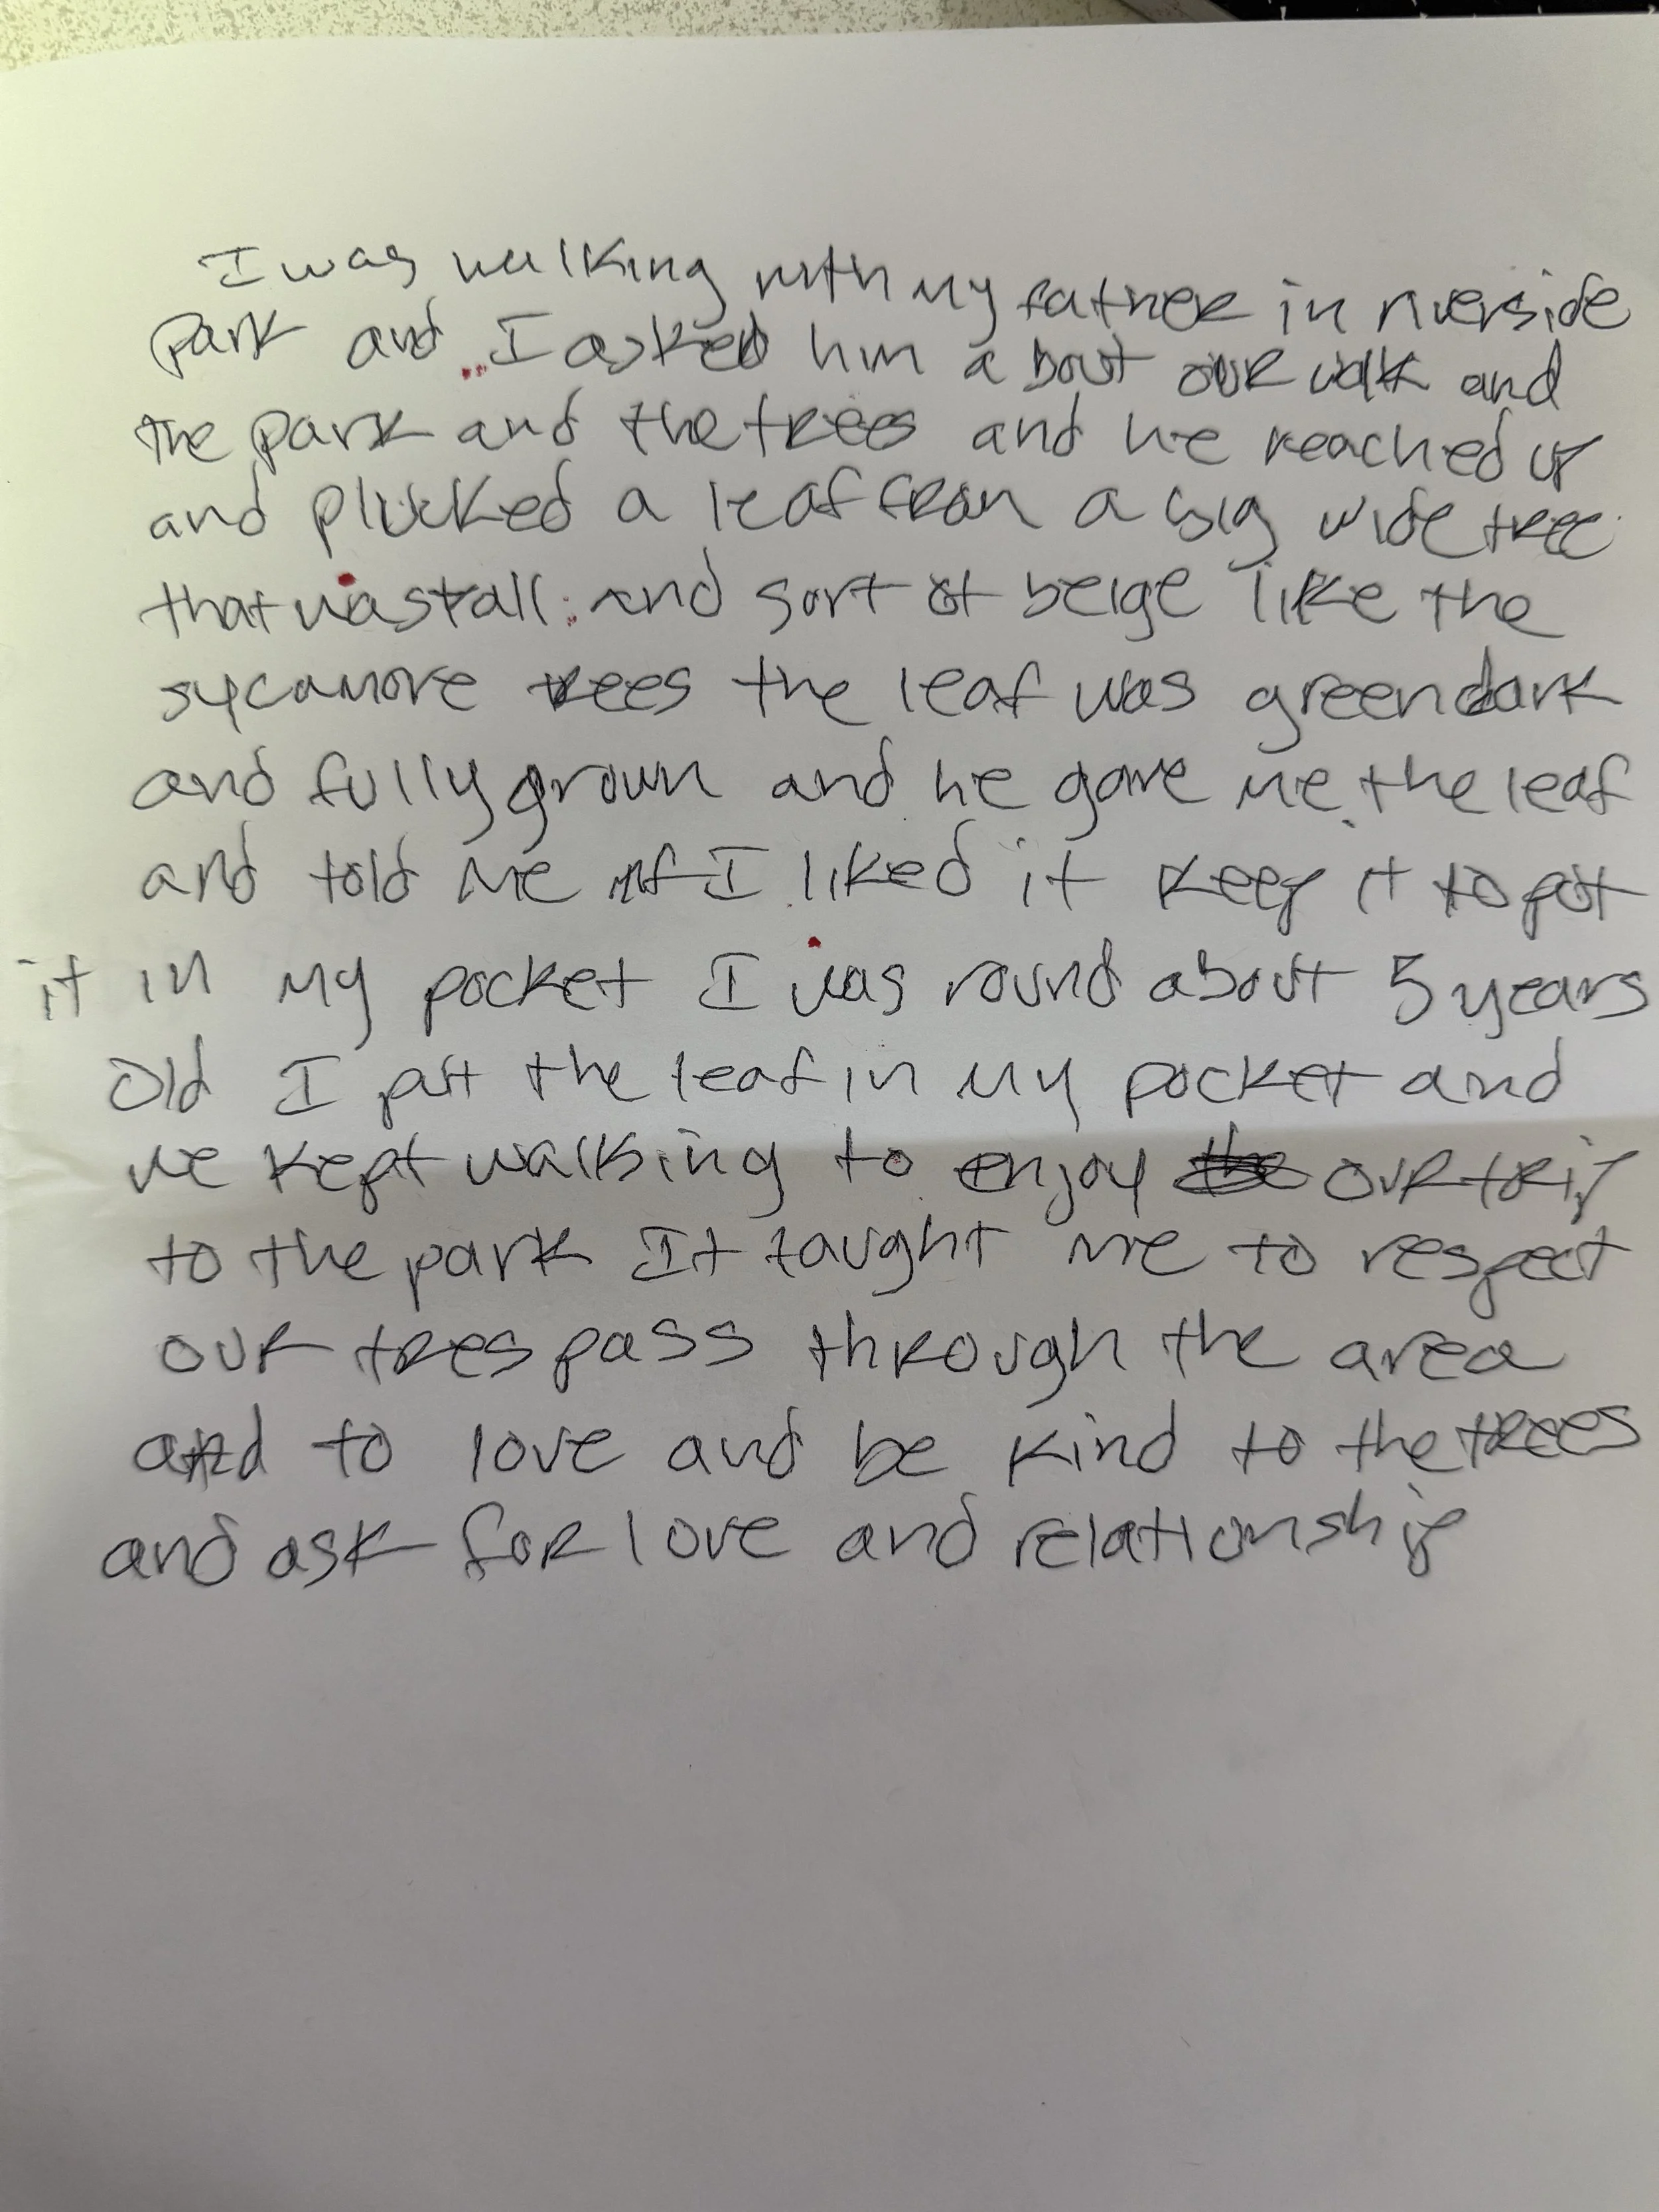 I was walking with my father in riverside
park and I asked him about our walk and
the park and the trees and he reached up
and plucked a leaf from a big wide tree
that was tall and sort of beige like the
sycamore trees the leaf was green dark
and fully grown and he gave me the leaf
and told me if I liked it keep it to put
it in my pocket I was round about 5 years
old I put the leaf in my pocket and
we kept walking to enjoy our trip
to the park It taught me to respect
our trespass through the area
and to love and be kind to the trees
and ask for love and relationship